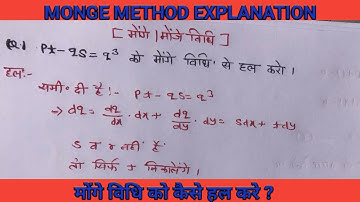 MONGE METHOD EXPLANATION
[ मोंगे | मोंजे विधि ]
Q.1 Pt - qs = q³ को मोंगे विधि से हल करो ।
हल:-
समी० दी है :- Pt - qs = q³
→ dq = dq/dx · dx + dq/dy · dy = sdx + tdy
s व r नहीं है
तो सिर्फ t निकालेंगे ।
मोंगे विधि को कैसे हल करे ?